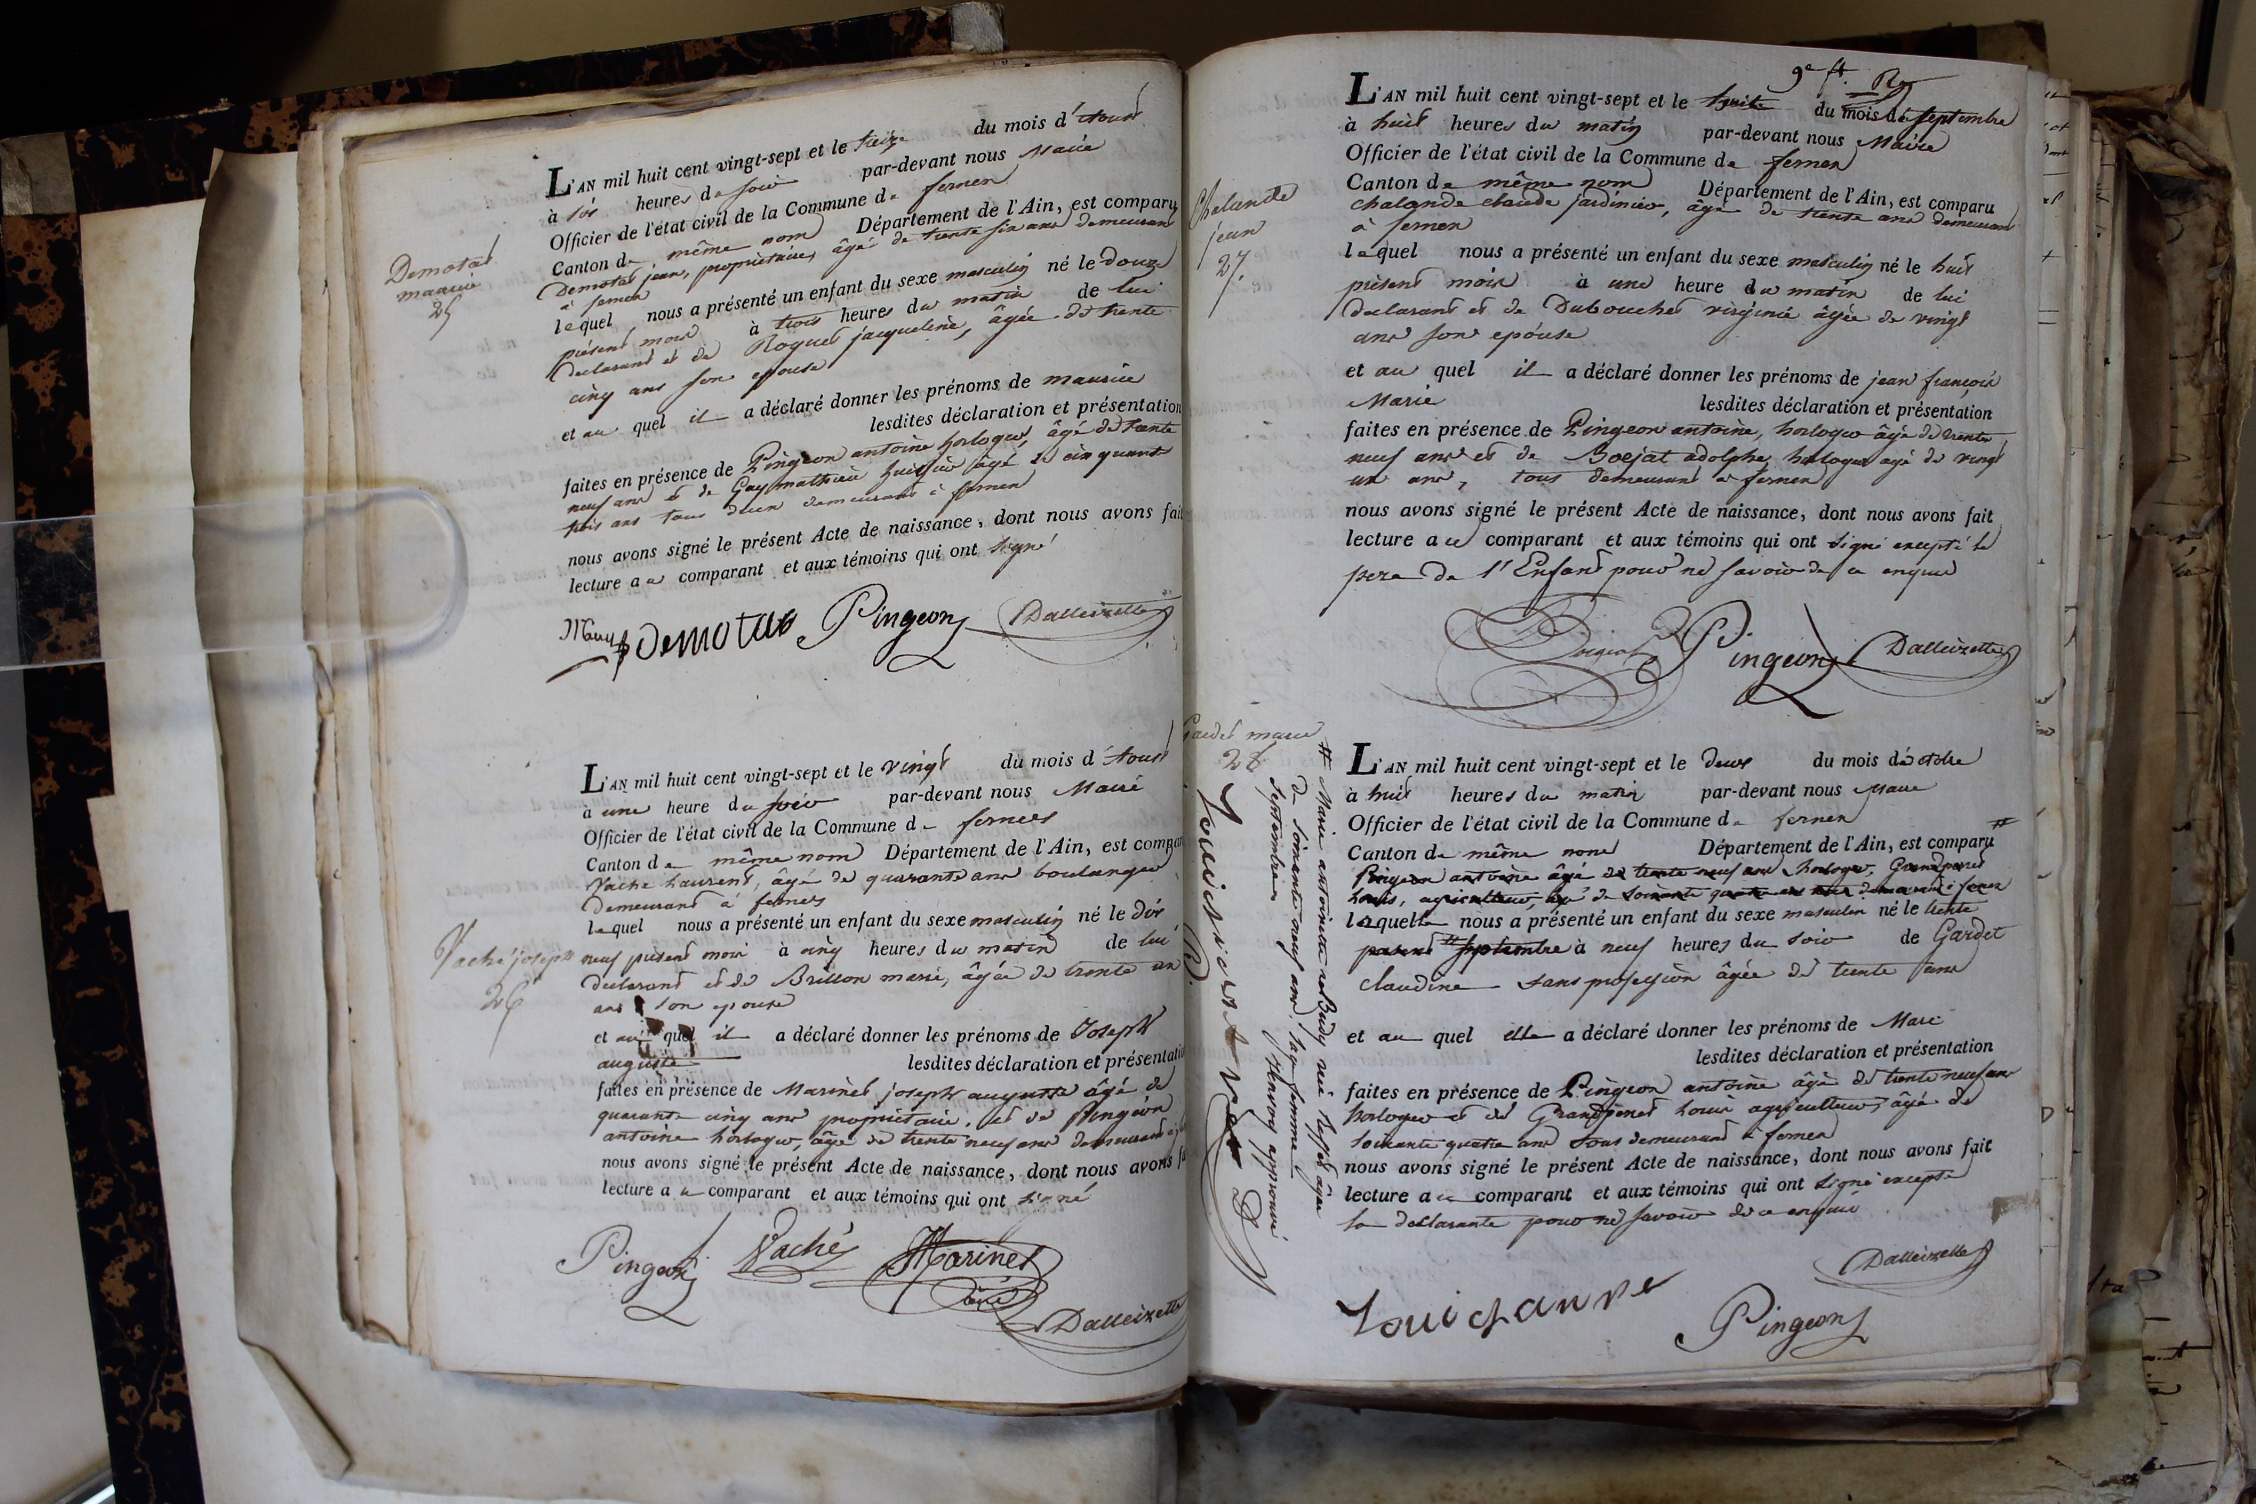 Demotas
maurice
25
L'AN mil huit cent vingt-sept et le treize du mois d'Aoust
à six heures du soir par-devant nous Maire
Officier de l'état civil de la Commune de fernex
Canton de même nom Département de l'Ain, est comparu
Demotas jean, propriétaire, âgé de trente six ans demeurant
à fernex
lequel nous a présenté un enfant du sexe masculin né le douze
présent mois à trois heures du matin de lui
declarant et de Roguet jacqueline, âgée de trente
cinq ans son epouse
et au quel il a déclaré donner les prénoms de maurice
lesdites déclaration et présentation
faites en présence de Pingeon antoine horloger, âgé de trente
neuf ans et de Gay mathieu huissier âgé de cinquante
trois ans tous deux demeurant à fernex
nous avons signé le présent Acte de naissance, dont nous avons fait
lecture au comparant et aux témoins qui ont signé
Demotas Pingeon Dalleizette
Vaché joseph
26
L'AN mil huit cent vingt-sept et le vingt du mois d'Aoust
à une heure du soir par-devant nous Maire
Officier de l'état civil de la Commune de fernex
Canton de même nom Département de l'Ain, est comparu
Vaché Laurent, âgé de quarante ans boulanger
demeurant à fernex
lequel nous a présenté un enfant du sexe masculin né le dix
neuf présent mois à cinq heures du matin de lui
declarant et de Brillon marie, âgée de trente un
ans son epouse
et au quel il a déclaré donner les prénoms de Joseph
auguste lesdites déclaration et présentation
faites en présence de Marinet joseph auguste âgé de
quarante cinq ans propriétaire, et de Pingeon
antoine horloger, âgé de trente neuf ans demeurant à
nous avons signé le présent Acte de naissance, dont nous avons fa
lecture au comparant et aux témoins qui ont signé
Pingeon Vaché Marinet
Dalleizette
9e ft. Rg
Chalande
jean
27
L'AN mil huit cent vingt-sept et le huit du mois de septembre
à huit heures du matin par-devant nous Maire
Officier de l'état civil de la Commune de fernex
Canton de même nom Département de l'Ain, est comparu
chalande claude jardinier, âgé de trente ans demeurant
à fernex
lequel nous a présenté un enfant du sexe masculin né le huit
présent mois à une heure du matin de lui
declarant et de Dubouchet virginie âgée de vingt
ans son epouse
et au quel il a déclaré donner les prénoms de jean françois
Marie lesdites déclaration et présentation
faites en présence de Pingeon antoine, horloger âgé de trente
neuf ans et de Boejat adolphe horloger agé de vingt
un ans, tous demeurant à fernex
nous avons signé le présent Acte de naissance, dont nous avons fait
lecture au comparant et aux témoins qui ont signé excepté le
pere de l'Enfant pour ne savoir de ce enquis
Pingeon Dalleizette
Gardet marc
28
# Marie antoinette Budy née âgée
de soixante neuf ans, sage femme à
septembre approuvé
L'AN mil huit cent vingt-sept et le deux du mois d'octobre
à huit heures du matin par-devant nous Maire
Officier de l'état civil de la Commune de fernex
Canton de même nom Département de l'Ain, est comparu #
Pingeon antoine âgé de trente neuf ans horloger, Grandperret
Louis, agriculteur, âgé de soixante quatre ans tous demeurant à fernex
laquelle nous a présenté un enfant du sexe masculin né le trente
present # septembre à neuf heures du soir de Gardet
claudine sans profession âgée de trente ans
et au quel elle a déclaré donner les prénoms de Marc
lesdites déclaration et présentation
faites en présence de Pingeon antoine âgé de trente neuf ans
horloger et de Grandperret Louis agriculteur, âgé de
soixante quatre ans tous demeurant à fernex
nous avons signé le présent Acte de naissance, dont nous avons fait
lecture au comparant et aux témoins qui ont signé excepté
la déclarante pour ne savoir de ce enquis
Dalleizette
Pingeon